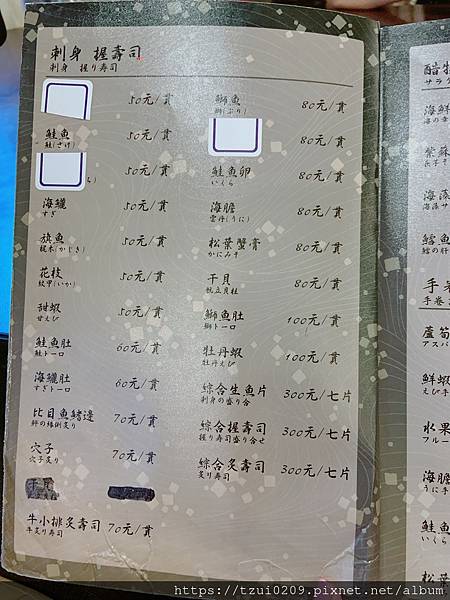 刺身 握壽司
刺身 握り寿司
50元/貫
鮭魚
鮭(さけ)
50元/貫
50元/貫
海鱺
すぎ
50元/貫
旗魚
梶木(かじき)
50元/貫
花枝
紋甲(いか)
50元/貫
甜蝦
甘えび
50元/貫
鮭魚肚
鮭トーロ
60元/貫
海鱺肚
すぎトーロ
60元/貫
比目魚鰭邊
70元/貫
穴子
穴子炙り
70元/貫
牛小排炙壽司
牛炙り寿司
70元/貫
鰤魚
鰤(ぶり)
80元/貫
80元/貫
鮭魚卵
いくら
80元/貫
海膽
雲丹(うに)
80元/貫
松葉蟹膏
かにみそ
80元/貫
干貝
帆立貝柱
80元/貫
鰤魚肚
鰤トーロ
100元/貫
牡丹蝦
牡丹えび
100元/貫
綜合生魚片
刺身の盛り合
300元/七片
綜合握壽司
握り寿司盛り合せ
300元/七片
綜合炙壽司
炙り寿司
300元/七片
サラダ
海鮮
海の幸
紫蘇
海藻
海藻サ
鱈魚
鱈の肝
手卷
蘆筍
アスパ
鮮蝦
えび手
水果
フルー
海膽
うに手
鮭魚
いくら
松葉
https://tzui0209.pixnet.net/album